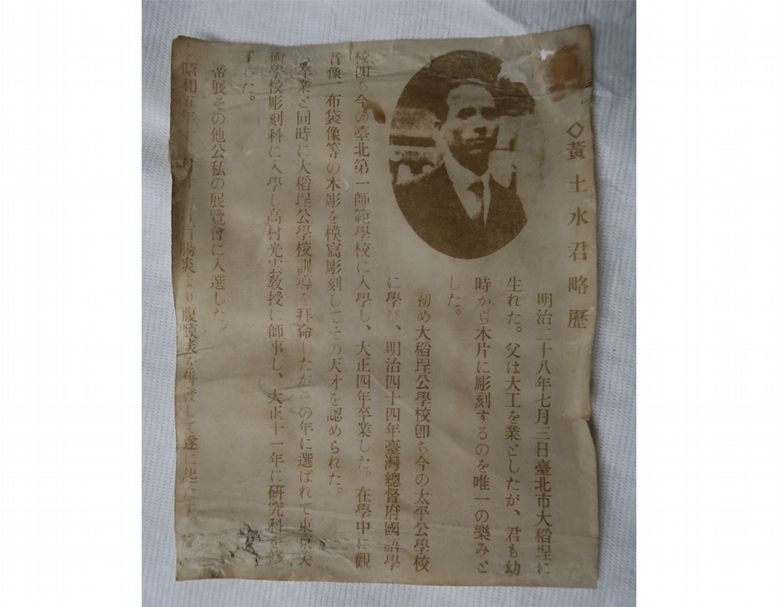 ◇黃土水君略歷
明治二十八年七月三日臺北市大稻埕に
生れた。父は大工を業としたが、君も幼
時から木片に彫刻するのを唯一の樂みと
した。
初め大稻埕公學校卽ち今の太平公學校
に學び、明治四十四年臺灣總督府國語學
校卽ち今の臺北第一師範學校に入學し、大正四年卒業した。在學中に觀
音像、布袋像等の木彫を模寫彫刻してその天才を認められた。
卒業と同時に大稻埕公學校訓導を拜命したがその年に選ばれて東京美
術學校彫刻科に入學し高村光雲敎授に師事し、大正十一年に硏究科を修
了した。
帝展その他公私の展覽會に入選した。
昭和五年十 月 盲腸炎より腹膜炎を併發して遂に